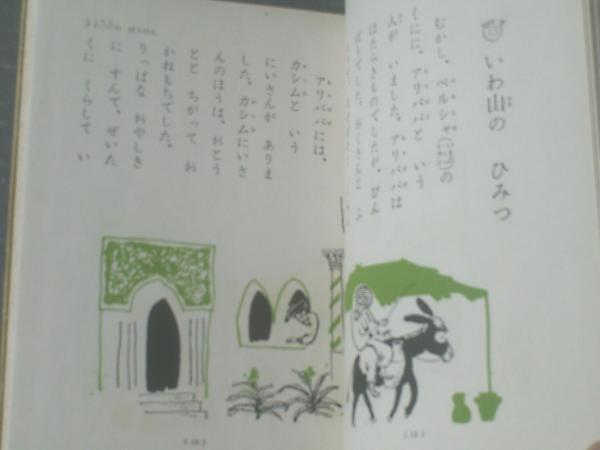 いわ山の ひみつ
むかし、ペルシャの
くにに、アリババと いう
人が いました。アリババは
はたらきものでしたが、びん
アリババには、
カシムと いう
にいさんが ありま
した。カシムにいさ
んのほうは、おとう
とと ちがって お
かねもちでした。
りっぱな おやしき
に すんで、ぜいた
くに くらして い